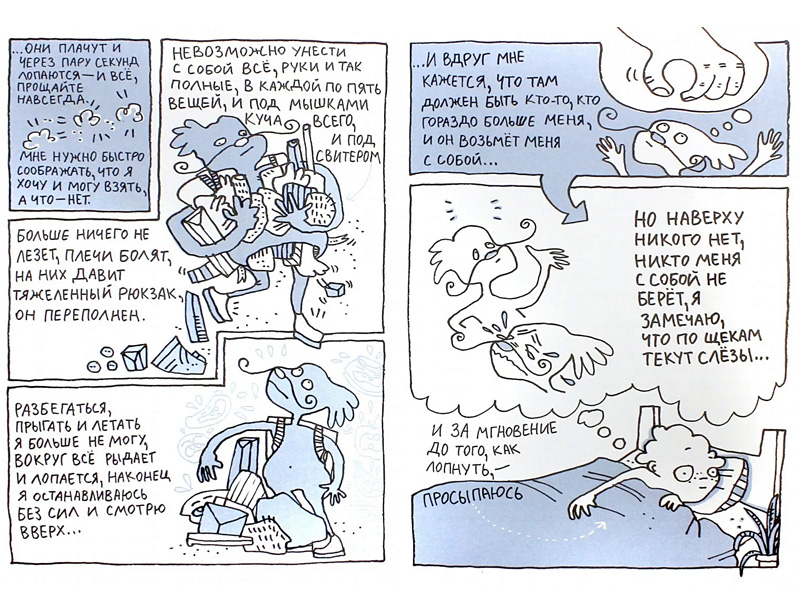 ...ОНИ ПЛАЧУТ И
ЧЕРЕЗ ПАРУ СЕКУНД
ЛОПАЮТСЯ — И ВСЁ,
ПРОЩАЙТЕ
НАВСЕГДА...
МНЕ НУЖНО БЫСТРО
СООБРАЖАТЬ, ЧТО Я
ХОЧУ И МОГУ ВЗЯТЬ,
А ЧТО — НЕТ.
НЕВОЗМОЖНО УНЕСТИ
С СОБОЙ ВСЁ, РУКИ И ТАК
ПОЛНЫЕ, В КАЖДОЙ ПО ПЯТЬ
ВЕЩЕЙ, И ПОД МЫШКАМИ
КУЧА ВСЕГО,
И ПОД
СВИТЕРОМ
БОЛЬШЕ НИЧЕГО НЕ
ЛЕЗЕТ, ПЛЕЧИ БОЛЯТ,
НА НИХ ДАВИТ
ТЯЖЕЛЕННЫЙ РЮКЗАК,
ОН ПЕРЕПОЛНЕН.
РАЗБЕГАТЬСЯ,
ПРЫГАТЬ И ЛЕТАТЬ
Я БОЛЬШЕ НЕ МОГУ,
ВОКРУГ ВСЁ РЫДАЕТ
И ЛОПАЕТСЯ, НАКОНЕЦ
Я ОСТАНАВЛИВАЮСЬ
БЕЗ СИЛ И СМОТРЮ
ВВЕРХ...
...И ВДРУГ МНЕ
КАЖЕТСЯ, ЧТО ТАМ
ДОЛЖЕН БЫТЬ КТО-ТО, КТО
ГОРАЗДО БОЛЬШЕ МЕНЯ,
И ОН ВОЗЬМЁТ МЕНЯ
С СОБОЙ...
НО НАВЕРХУ
НИКОГО НЕТ,
НИКТО МЕНЯ
С СОБОЙ НЕ
БЕРЁТ, Я
ЗАМЕЧАЮ,
ЧТО ПО ЩЕКАМ
ТЕКУТ СЛЁЗЫ...
И ЗА МГНОВЕНИЕ
ДО ТОГО, КАК
ЛОПНУТЬ, —
ПРОСЫПАЮСЬ